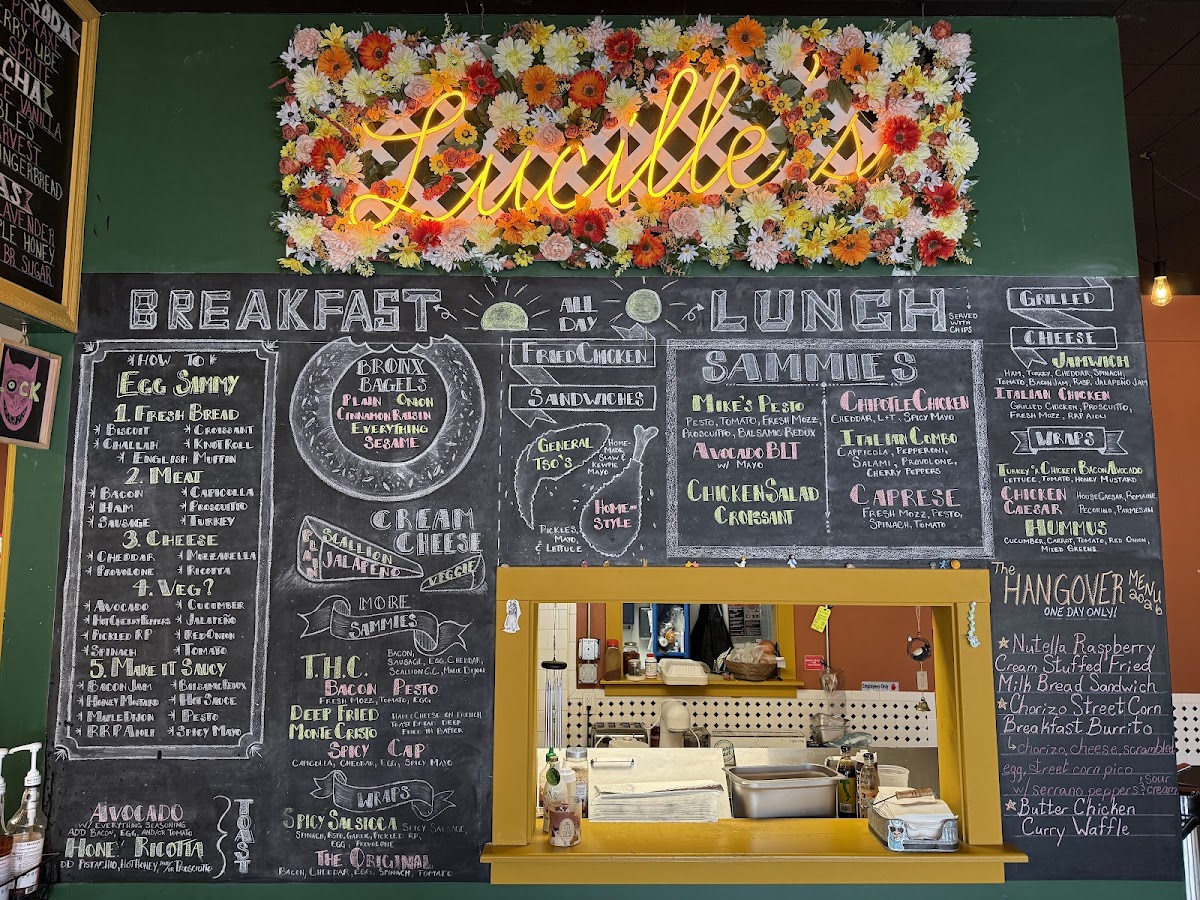 SODA
SPRITE
VANILLA
HARVEST
GINGERBREAD
LAVENDER
HONEY
BR SUGAR
OCK
Lucille's
BREAKFAST
ALL
DAY
LUNCH
SERVED
WITH
CHIPS
*HOW TO*
EGG SAMMY
1. FRESH BREAD
*BISCUIT *CROISSANT
*CHALLAH *KNOT ROLL
*ENGLISH MUFFIN
2. MEAT
*BACON *CAPICOLLA
*HAM *PROSCUITTO
*SAUSAGE *TURKEY
3. CHEESE
*CHEDDAR *MOZZARELLA
*PROVOLONE *RICOTTA
4. VEG?
*AVOCADO *CUCUMBER
*HOT CHERRY PEPPERS *JALAPEÑO
*PICKLED RP *RED ONION
*SPINACH *TOMATO
5. MAKE IT SAUCY
*BACON JAM *BALSAMIC REDUX
*HONEY MUSTARD *HOT SAUCE
*MAPLE DIJON *PESTO
*RRP AIOLI *SPICY MAYO
AVOCADO
W/ EVERYTHING SEASONING
ADD BACON, EGG, AND/OR TOMATO
HONEY RICOTTA
PISTACHIO, HOT HONEY, AND/OR PROSCIUTTO
TOAST
BRONX
BAGELS
PLAIN ONION
CINNAMON RAISIN
EVERYTHING
SESAME
CREAM
CHEESE
PLAIN
SCALLION
JALAPEÑO
VEGGIE
MORE
SAMMIES
T.H.C.
BACON,
SAUSAGE, EGG, CHEDDAR,
SCALLION C.C., MAPLE DIJON
BACON PESTO
FRESH MOZZ, TOMATO, EGG
DEEP FRIED
MONTE CRISTO
HAM & CHEESE ON FRENCH
TOAST BREAD DEEP
FRIED IN BATTER
SPICY CAP
CAPICOLLA, CHEDDAR, EGG, SPICY MAYO
WRAPS
SPICY SALSICCA SPICY SAUSAGE,
SPINACH, RSTD. GARLIC, PICKLED RP,
EGG, PROVOLONE
THE ORIGINAL
BACON, CHEDDAR, EGG, SPINACH, TOMATO
FRIED CHICKEN
SANDWICHES
GENERAL
TSO'S
HOME-
MADE
SLAW &
KEWPIE
MAYO
HOME-
STYLE
PICKLES,
MAYO,
& LETTUCE
SAMMIES
MIKE'S PESTO
PESTO, TOMATO, FRESH MOZZ,
PROSCUITTO, BALSAMIC REDUX
AVOCADO BLT
W/ MAYO
CHICKEN SALAD
CROISSANT
CHIPOTLE CHICKEN
CHEDDAR, L+T, SPICY MAYO
ITALIAN COMBO
CAPPICOLA, PEPPERONI,
SALAMI, PROVOLONE,
CHERRY PEPPERS
CAPRESE
FRESH MOZZ, PESTO,
SPINACH, TOMATO
GRILLED
CHEESE
JAMWICH
HAM, TURKEY, CHEDDAR, SPINACH,
TOMATO, BACON JAM, RASP. JALAPEÑO JAM
ITALIAN CHICKEN
GRILLED CHICKEN, PROSCUITTO,
FRESH MOZZ, RRP AIOLI
WRAPS
TURKEY OR CHICKEN BACON AVOCADO
LETTUCE, TOMATO, HONEY MUSTARD
CHICKEN
CAESAR
HOUSE CAESAR, ROMAINE,
PECORINO, PARMESAN
HUMMUS
CUCUMBER, CARROT, TOMATO, RED ONION,
MIXED GREENS
The HANGOVER MENU
ONE DAY ONLY!
Nutella Raspberry
Cream Stuffed Fried
Milk Bread Sandwich
Chorizo Street Corn
Breakfast Burrito
chorizo, cheese, scrambled
egg, street corn pico
w/ serrano peppers & sour cream
Butter Chicken
Curry Waffle
Employees Only